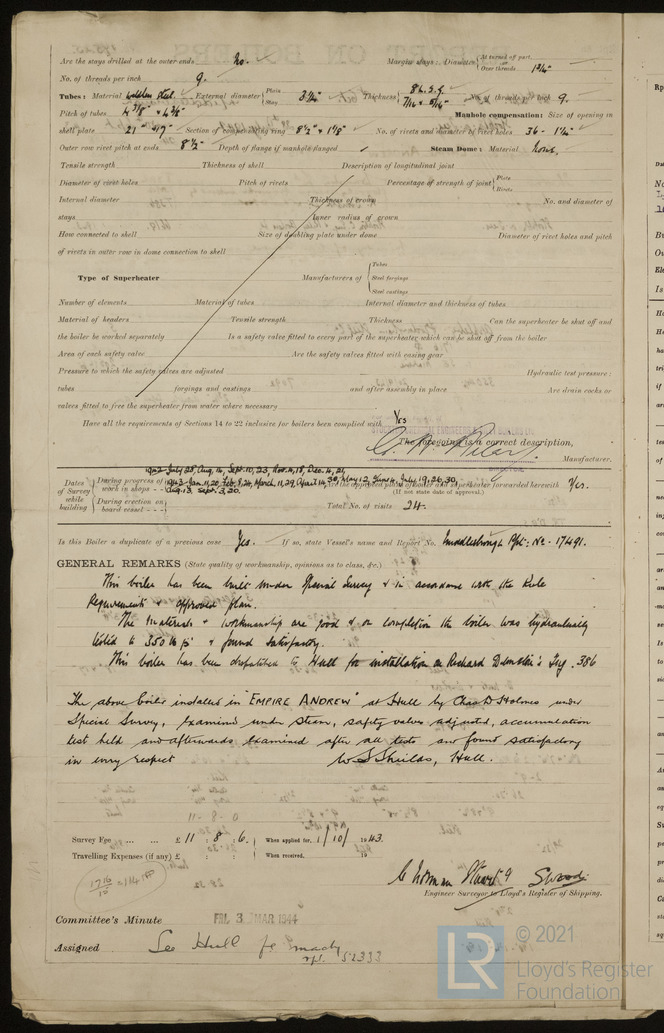 Are the stays drilled at the outer ends No. Margin stays: Diameter At turned off part, or Over threads 1¾"
No. of threads per inch 9.
Tubes: Material External diameter Plain Stay 3¼" Thickness 8 L.S.G. 7/16" 5/16" No. of threads per inch 9.
Pitch of tubes 4⅜" × 4⅜" Manhole compensation: Size of opening in
shell plate 21" × 17" Section of compensating ring 8½" × 1⅛" No. of rivets and diameter of rivet holes 36 - 1¼"
Outer row rivet pitch at ends 8½" Depth of flange if manhole flanged Steam Dome: Material None.
Tensile strength Thickness of shell Description of longitudinal joint
Diameter of rivet holes Pitch of rivets Percentage of strength of joint Plate Rivets
Internal diameter Thickness of crown No. and diameter of
stays Inner radius of crown
How connected to shell Size of doubling plate under dome Diameter of rivet holes and pitch
of rivets in outer row in dome connection to shell
Type of Superheater Manufacturers of Tubes Steel forgings Steel castings
Number of elements Material of tubes Internal diameter and thickness of tubes
Material of headers Tensile strength Thickness Can the superheater be shut off and
the boiler be worked separately Is a safety valve fitted to every part of the superheater which can be shut off from the boiler
Area of each safety valve Are the safety valves fitted with easing gear
Pressure to which the safety valves are adjusted Hydraulic test pressure:
tubes forgings and castings and after assembly in place Are drain cocks or
valves fitted to free the superheater from water where necessary
Have all the requirements of Sections 14 to 22 inclusive for boilers been complied with Yes
The foregoing is a correct description,
DIRECTOR Manufacturer.
Dates of Survey while building During progress of work in shops - - 1942 July 28, Aug. 14, Sept. 10, 23, Nov. 4, 18, Dec. 4, 21,
1943 Jan. 11, 20, Feb. 9, 24, March 11, 29, April 14, 30, May 12, June 4, July 19, 26, 30,
Aug. 13, Sept. 3, 20.
Are the approved plans of boiler and superheater forwarded herewith Yes.
(If not state date of approval.)
During erection on board vessel - - - Total No. of visits 24.
Is this Boiler a duplicate of a previous case Yes. If so, state Vessel's name and Report No. Middlesbrough Rpt: No. 17491.
GENERAL REMARKS (State quality of workmanship, opinions as to class, &c.)
This boiler has been built under Special Survey & in accordance with the Rule
Requirements & approved plan.
The materials & workmanship are good & on completion the boiler was hydraulically
tested to 350 lb/□" & found satisfactory.
This boiler has been despatched to Hull for installation on Richard Dunston's Tug. 386
The above boiler installed in "EMPIRE ANDREW" at Hull by Chas D Holmes under
Special Survey, examined under steam, safety valves adjusted, accumulation
test held and afterwards examined after all tests and found satisfactory
in every respect W S Shields, Hull.
Survey Fee ... ... £ 11 : 8 : 6. When applied for, 1/10/1943.
Travelling Expenses (if any) £ : : When received, 19
Engineer Surveyor to Lloyd's Register of Shipping.
Committee's Minute FRI. 3 MAR 1944
Assigned See Hull fe machy
rpt. 52333
LR
© 2021
Lloyd's Register
Foundation